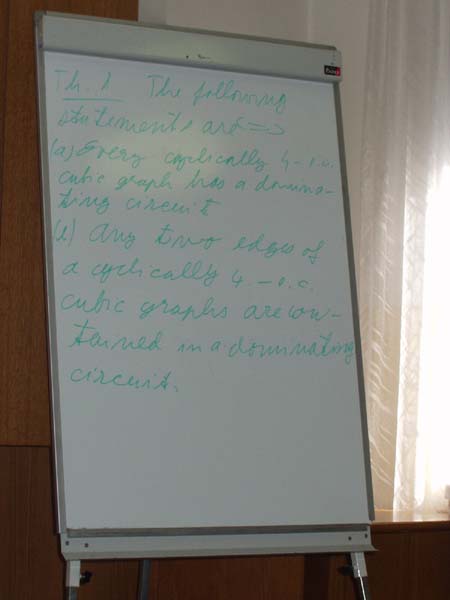 Th. 1 The following
statements are <=>
(a) Every cyclically 4-e.c.
cubic graph has a domina-
ting circuit
(b) Any two edges of
a cyclically 4-e.c.
cubic graphs are con-
tained in a dominating
circuit.